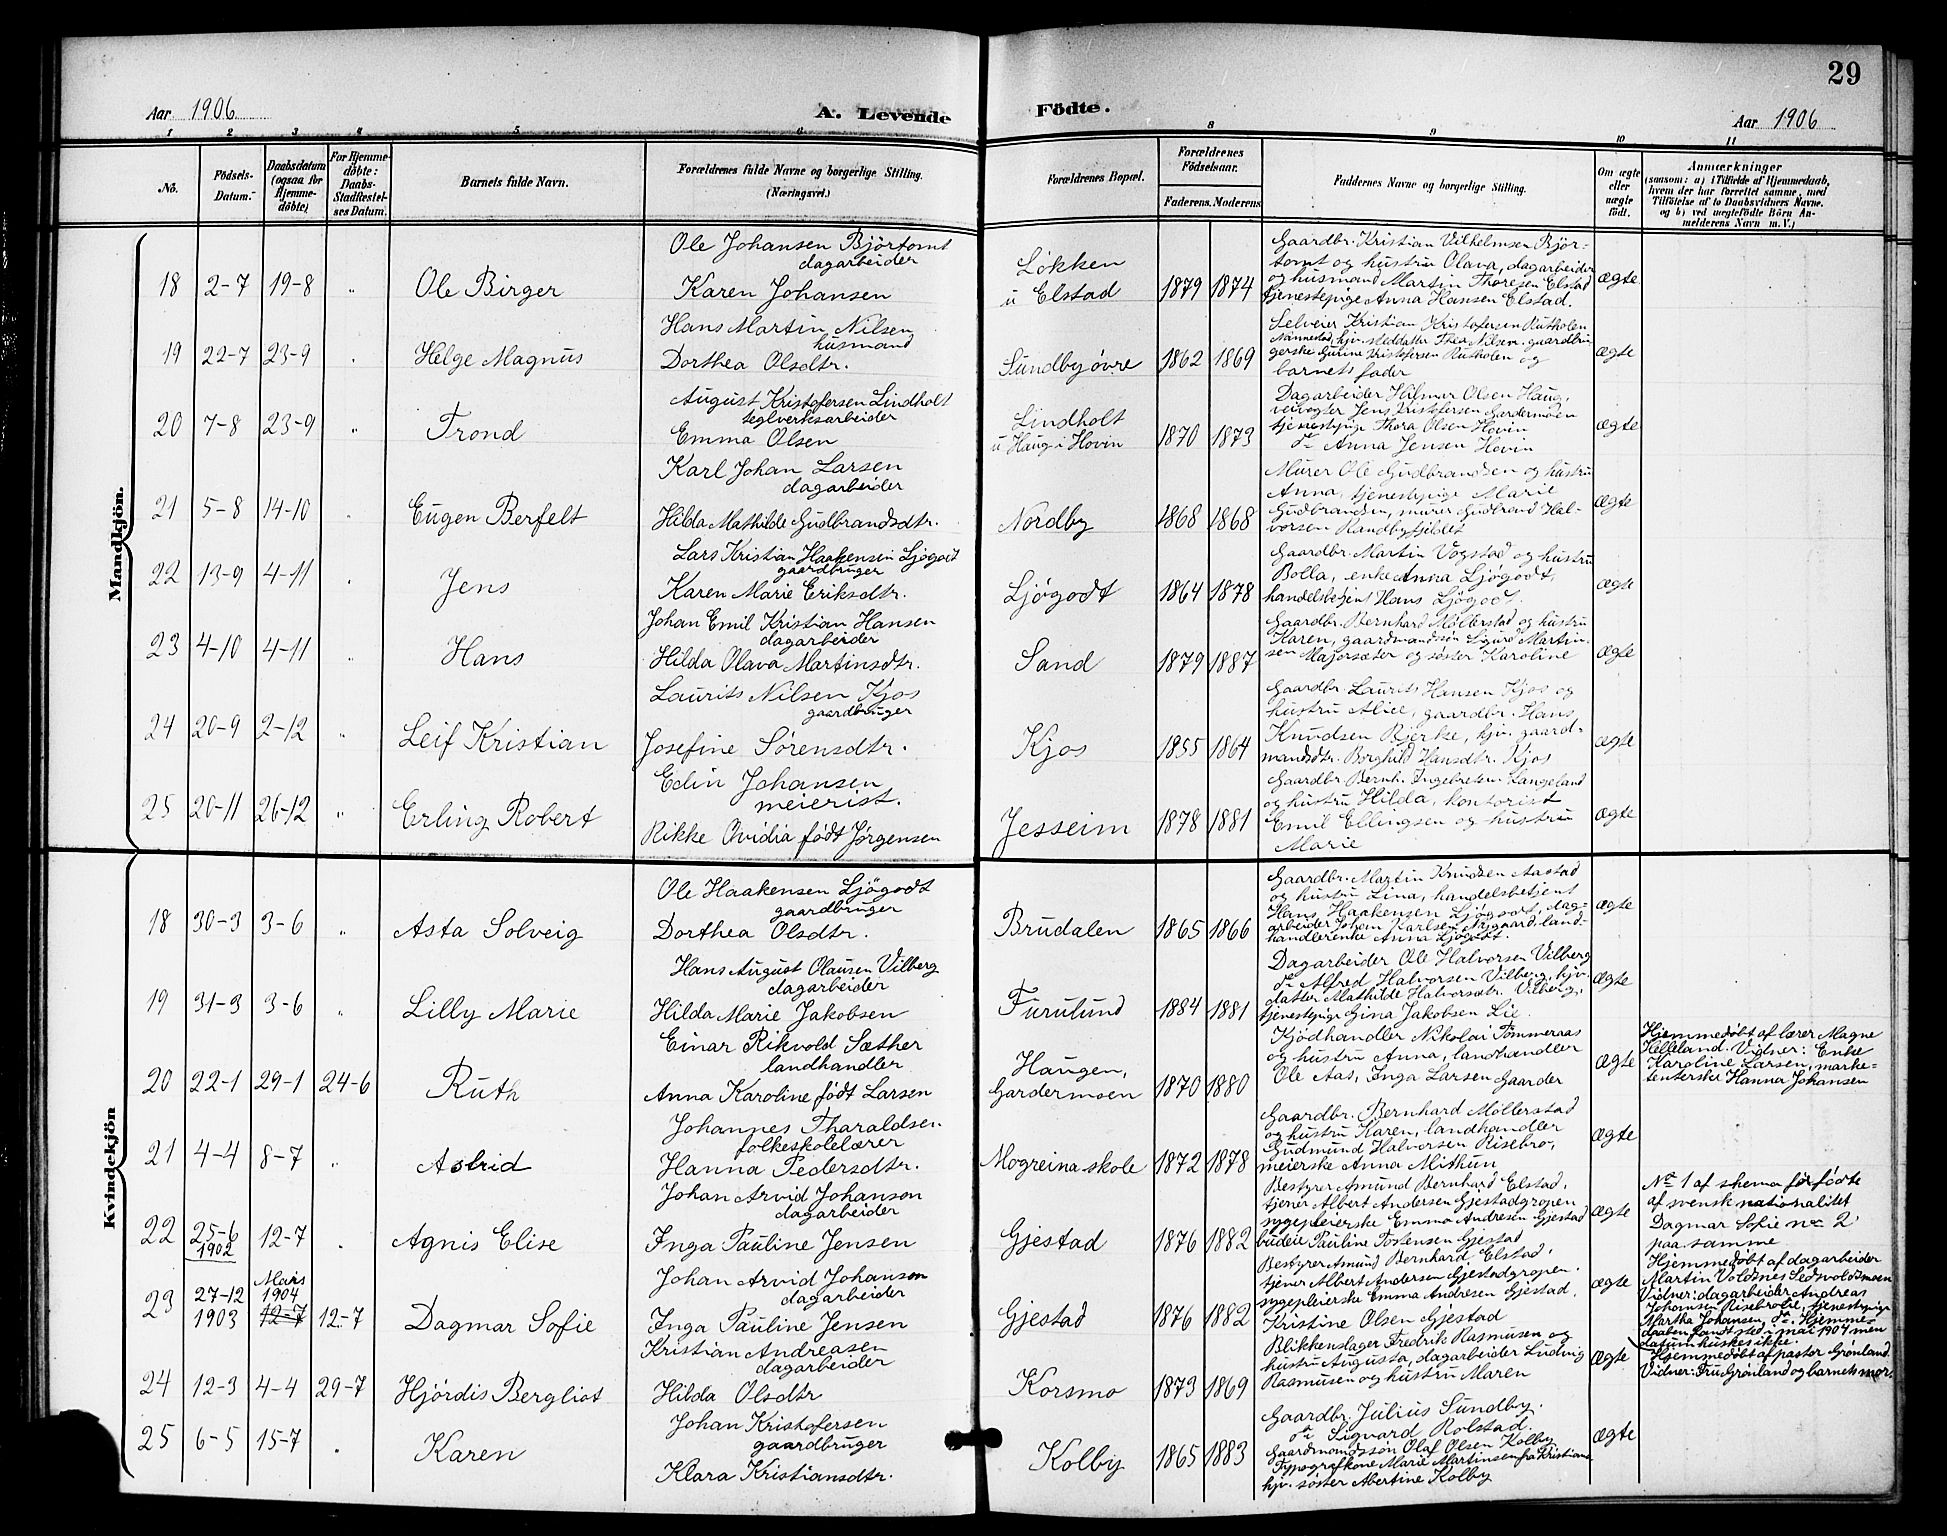 29
Aar 1906
A. Levende Födte.
Aar 1906
1 2 3 4 5 6 8 9 10 11
No.
Födsels-
Datum.
Daabsdatum
(ogsaa for
Hjemme-
döbte)
For Hjemme-
döbte:
Daabs-
Stadfæstel-
ses Datum.
Barnets fulde Navn.
Forældrenes fulde Navne og borgerlige Stilling.
(Næringsvei.)
Forældrenes Bopæl.
Forældrenes
Födselsaar.
Faderens. Moderens.
Faddernes Navne og borgerlige Stilling.
Om ægte
eller
uægte
födt.
Anmærkninger
(samsom: a) i Tilfælde af Hjemmedaab,
hvem der har forrettet samme, med
Tilföielse af to Daabsvidners Navne,
og b) ved uægtefödte Börn An-
melderens Navn m. V.)
Mandkjön.
18 2-7 19-8 " Ole Birger
Ole Johansen Björtomt
dagarbeider
Karen Johansen
Løkken
u Elstad
1879 1874
Gaardbr. Kristian Vilhelmsen Bjør-
tomt og hustru Olava, dagarbeider
og husmand Martin Thoresen Elstad
tjenestepige Anna Hansen Elstad.
ægte
19 22-7 23-9 " Helge Magnus
Hans Martin Nilsen
husmand
Dorthea Olsdtr.
Sundby øvre
1862 1869
Selveier Kristian Kristofersen Rutholen
Nannestad, hjv. steddatter Thea Nilsen, gaardbru-
gerske Gurine Kristofersen Rutholen og
barnets fader
ægte
20 7-8 23-9 " Trond
August Kristofersen Lindholt
teglverksarbeider
Emma Olsen
Lindholt
u Haug i Hovin
1870 1873
Dagarbeider Hilmar Olsen Haug,
veivogter Jens Kristofersen Gardermoen
tjenestepige Thora Olsen Hovin
do Anna Jensen Hovin
ægte
21 5-8 14-10 " Eugen Berfelt
Karl Johan Larsen
dagarbeider
Hilda Mathilde Gudbrandsdtr.
Nordby
1868 1868
Murer Ole Gudbrandsen og hustru
Anna, tjenestepige Marie
Gudbrandsen, murer Gudbrand Hal-
vorsen Randbyfjeldet
ægte
22 13-9 4-11 " Jens
Lars Kristian Haakensen Ljøgodt
gaardbruger
Karen Marie Eriksdtr.
Ljøgodt
1864 1878
Gaardbr. Martin Vogstad og hustru
Bolla, enke Anna Ljøgodt,
handelsbetjent Hans Ljøgodt.
ægte
23 4-10 4-11 " Hans
Johan Emil Kristian Hansen
dagarbeider
Hilda Olava Martinsdtr.
Sand
1879 1887
Gaardbr. Bernhard Møllerstad og hustru
Karen, gaardmandssøn Sigurd Martin-
sen Majorsæter og søster Karoline
ægte
24 20-9 2-12 " Leif Kristian
Laurits Nilsen Kjos
gaardbruger
Josefine Sørensdtr.
Kjos
1855 1864
Gaardbr. Laurits Hansen Kjos og
hustru Alice, gaardbr. Hans
Knudsen Bjerke, hjv. gaard-
mandsdtr. Borghild Hansdtr. Kjos
ægte
25 20-11 26-12 " Erling Robert
Edin Johansen
meierist.
Rikke Ovidia født Jørgensen
Jesseim
1878 1881
Gaardbr. Bernh. Ingebretsen Langeland
og hustru Hilda, kontorist
Emil Ellingsen og hustru
Marie
ægte
Kvindekjön
18 30-3 3-6 " Asta Solveig
Ole Haakensen Ljøgodt
gaardbruger
Dorthea Olsdtr.
Brudalen
1865 1866
Gaardbr. Martin Knudsen Aastad
og hustru Lina, handelsbetjent
Hans Haakensen Ljøgodt, dag-
arbeider Johan Karlsen Nygaard, land-
handlerenke Anna Ljøgodt.
ægte
19 31-3 3-6 " Lilly Marie
Hans August Olausen Vilberg
dagarbeider
Hilda Marie Jakobsen
Furulund
1884 1881
Dagarbeider Ole Halvorsen Vilberg
do Alfred Halvorsen Vilberg, hjv.
datter Mathilde Halvorsdtr. Vilberg,
tjenestepige Gina Jakobsen Lie.
ægte
20 22-1 29-1 24-6 Ruth
Einar Rikvold Sæther
landhandler
Anna Karoline født Larsen
Haugen,
Gardermoen
1870 1880
Kjødhandler Nikolai Tømmeraas
og hustru Anna, landhandler
Ole Aas, Inga Larsen Gaarder
ægte
Hjemmedøbt af lærer Magne
Helleland. Vidner: Enke
Karoline Larsen, marke-
tenterske Hanna Johansen
21 4-4 8-7 " Astrid
Johannes Tharaldsen
folkeskolelærer
Hanna Pedersdtr.
Mogreina skole
1872 1878
Gaardbr. Bernhard Møllerstad
og hustru Karen, landhandler
Gudmund Halvorsen Risebro,
meierske Anna Mithun
ægte
22 25-6
1902 12-7 " Agnis Elise
Johan Arvid Johanson
dagarbeider
Inga Pauline Jensen
Gjestad
1876 1882
Bestyrer Amund Bernhard Elstad,
tjener Albert Andersen Gjestadgropen
sygepleierske Emma Andresen Gjestad
budeie Pauline Torstensen Gjestad
ægte
No 1 af skema for fødte
af svensk nationalitet
Dagmar Sofie no 2
paa samme
23 27-12
1903 Mai's
1904
12-7 12-7 Dagmar Sofie
Johan Arvid Johanson
dagarbeider
Inga Pauline Jensen
Gjestad
1876 1882
Bestyrer Amund Bernhard Elstad,
tjener Albert Andersen Gjestadgropen.
sygepleierske Emma Andresen Gjestad,
Kristine Olsen Gjestad
ægte
Hjemmedøbt af dagarbeider
Martin Voldsnes Sedsvoldsmoen
Vidner: dagarbeider Andreas
Johansen Risebrolie, tjenestepige
Martha Johansen, do. Hjemme-
daaben fandt sted i mai 1904 men
datum huskes ikke.
24 12-3 4-4 29-7 Hjørdis Bergliot
Kristian Andreasen
dagarbeider
Hilda Olsdtr
Korsmo
1873 1869
Blikkenslager Fredrik Rasmusen og
hustru Augusta, dagarbeider Ludvig
Rasmusen og hustru Maren
ægte
Hjemmedøbt af pastor Grønland
Vidner: Fru Grønland og barnets mor.
25 6-5 15-7 " Karen
Johan Kristofersen
gaardbruger
Klara Kristiansdtr.
Kolby
1865 1883
Gaardbr. Julius Sundby.
do Sigvard Rolstad
Gaardmandssøn Olaf Olsen Kolby
Typografkone Marie Martinsen fra Kristiania
hjv. søster Abertine Kolby
ægte